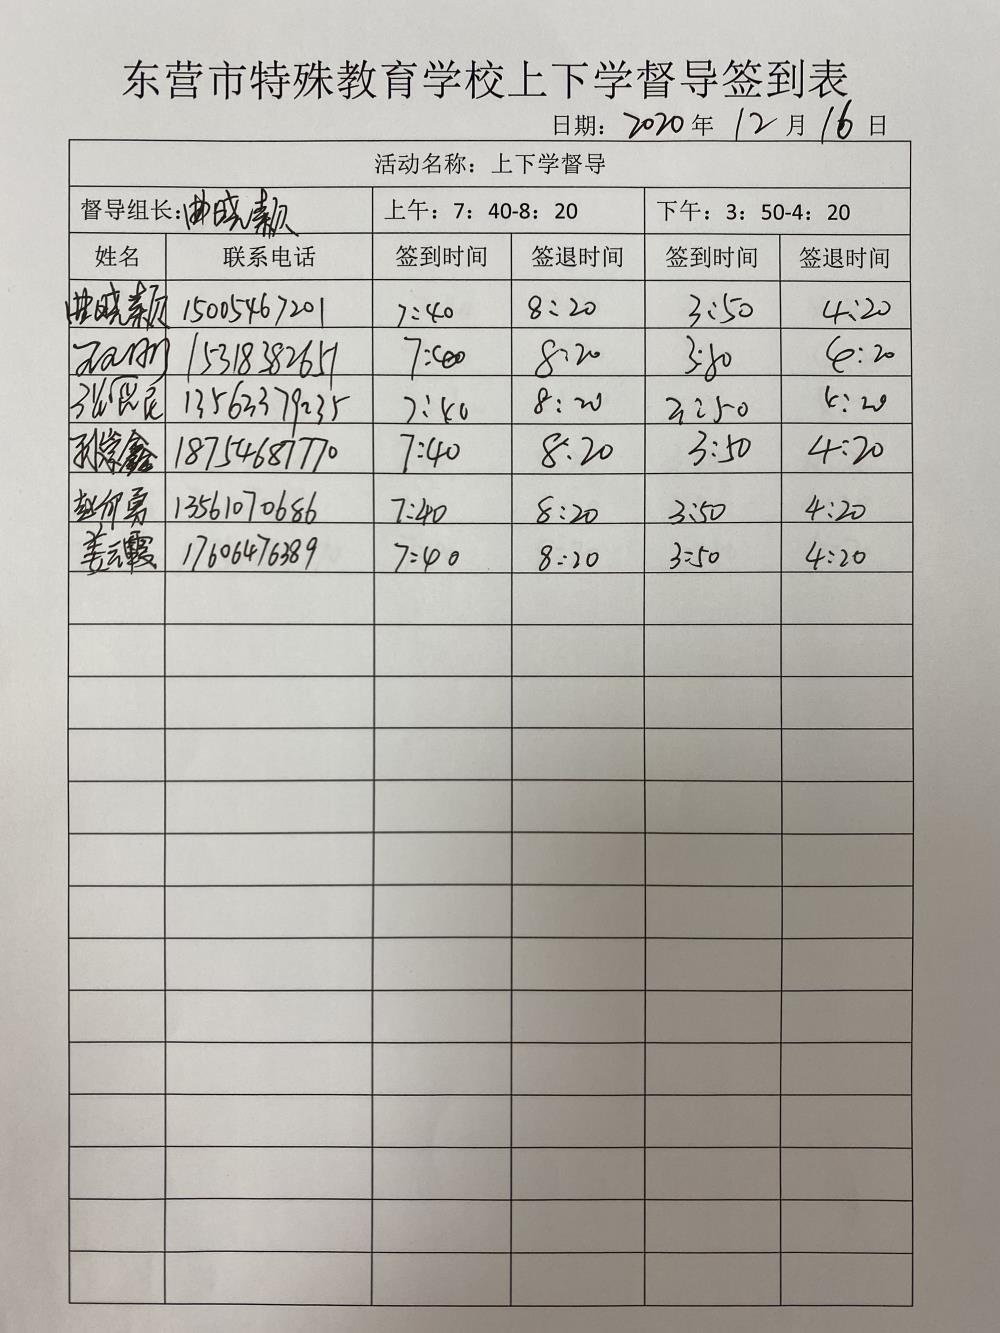 东营市特殊教育学校上下学督导签到表
日期：2020年12月16日
活动名称：上下学督导
督导组长：曲晓颖 上午：7：40-8：20 下午：3：50-4：20
姓名 联系电话 签到时间 签退时间 签到时间 签退时间
曲晓颖 15005467201 7:40 8:20 3:50 4:20
15318382651 7:40 8:20 3:50 4:20
13563379235 7:40 8:20 3:50 4:20
刘学鑫 18754687770 7:40 8:20 3:50 4:20
赵介勇 13561070686 7:40 8:20 3:50 4:20
姜云霞 17606476389 7:40 8:20 3:50 4:20